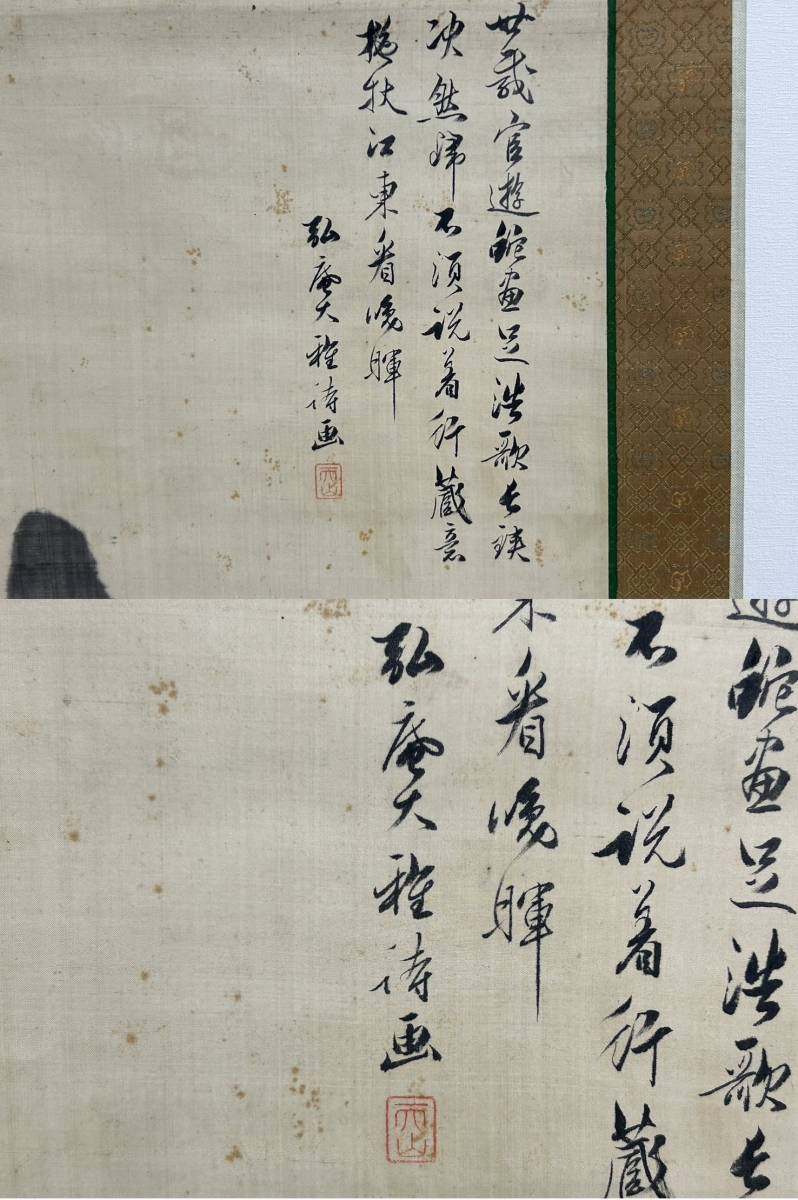 載官遊蛇畫足浩歌長鋏
决然歸不須説着行藏意
扶江東看晚暉
弘庵大雅待画
遊蛇畫足浩歌長
不須説着行藏
東看晚暉
弘庵大雅待画